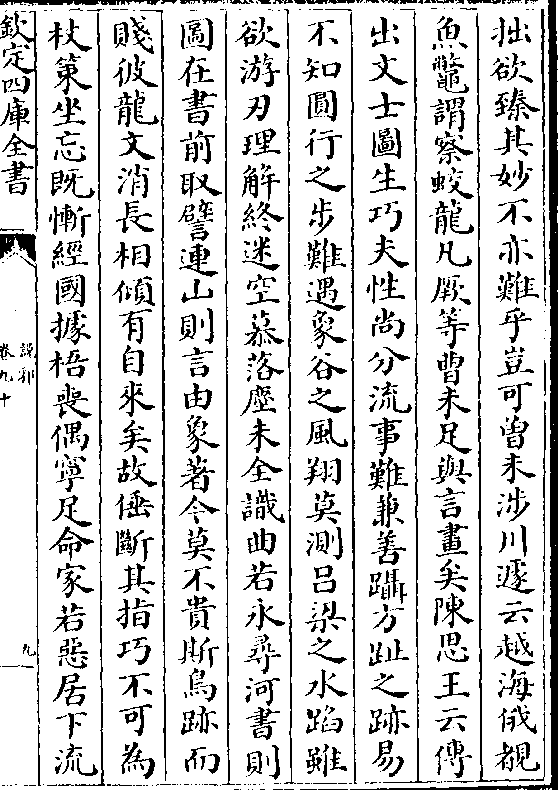 拙欲臻其妙不亦難乎豈可曽未涉川遽云越海俄覩
魚鼈謂察蛟龍凡厥等曹未足與言畫矣陳思王云傳
出文士圖生巧夫性尚分流事難兼善躡方趾之跡易
不知圓行之步難遇象谷之風翔莫測吕梁之水蹈雖
欲游刃理解終迷空慕落塵未全識曲若永尋河書則
圖在書前取譬連山則言由象著今莫不貴斯鳥跡而
賤彼龍文消長相傾有自來矣故倕斷其指巧不可為
杖策坐忘既慚經國據梧喪偶寧足命家若惡居下流
欽定四庫全書
說郛
卷九十
九